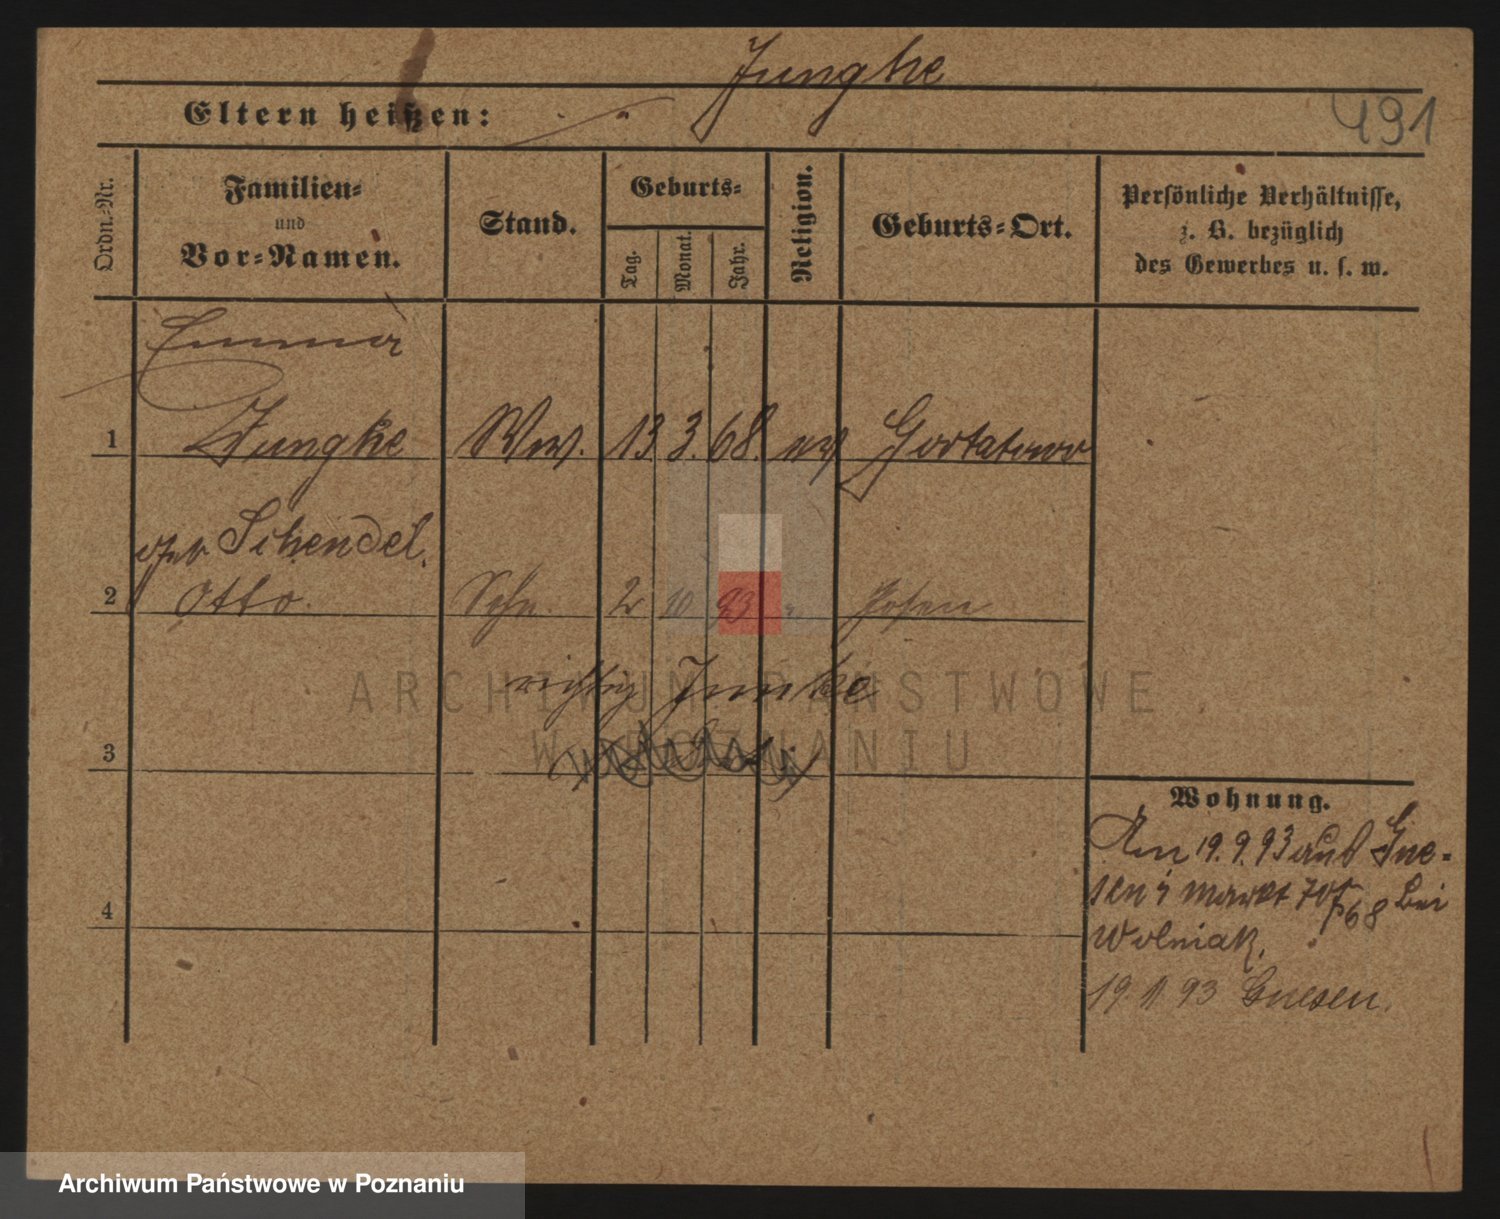 Jungke
Eltern heißen:
491
Ordn.-Nr.
Familien-
und
Vor-Namen.
Stand.
Geburts-
Tag.
Monat.
Jahr.
Religion.
Geburts-Ort.
Persönliche Verhältnisse,
z. B. bezüglich
des Gewerbes u. s. w.
Emma
1 Jungke Ww. 13. 3. 68. ev Gortatowo
geb Schendel.
2 Otto. Sohn 2 10 93 Posen
richtig Junke
3
4
Wohnung.
Am 19. 9. 93 aus Gne-
sen 4 Markt bei
Wolniak.
19. 11 93 Gnesen.
ARCHIWUM PAŃSTWOWE
W POZNANIU
Archiwum Państwowe w Poznaniu